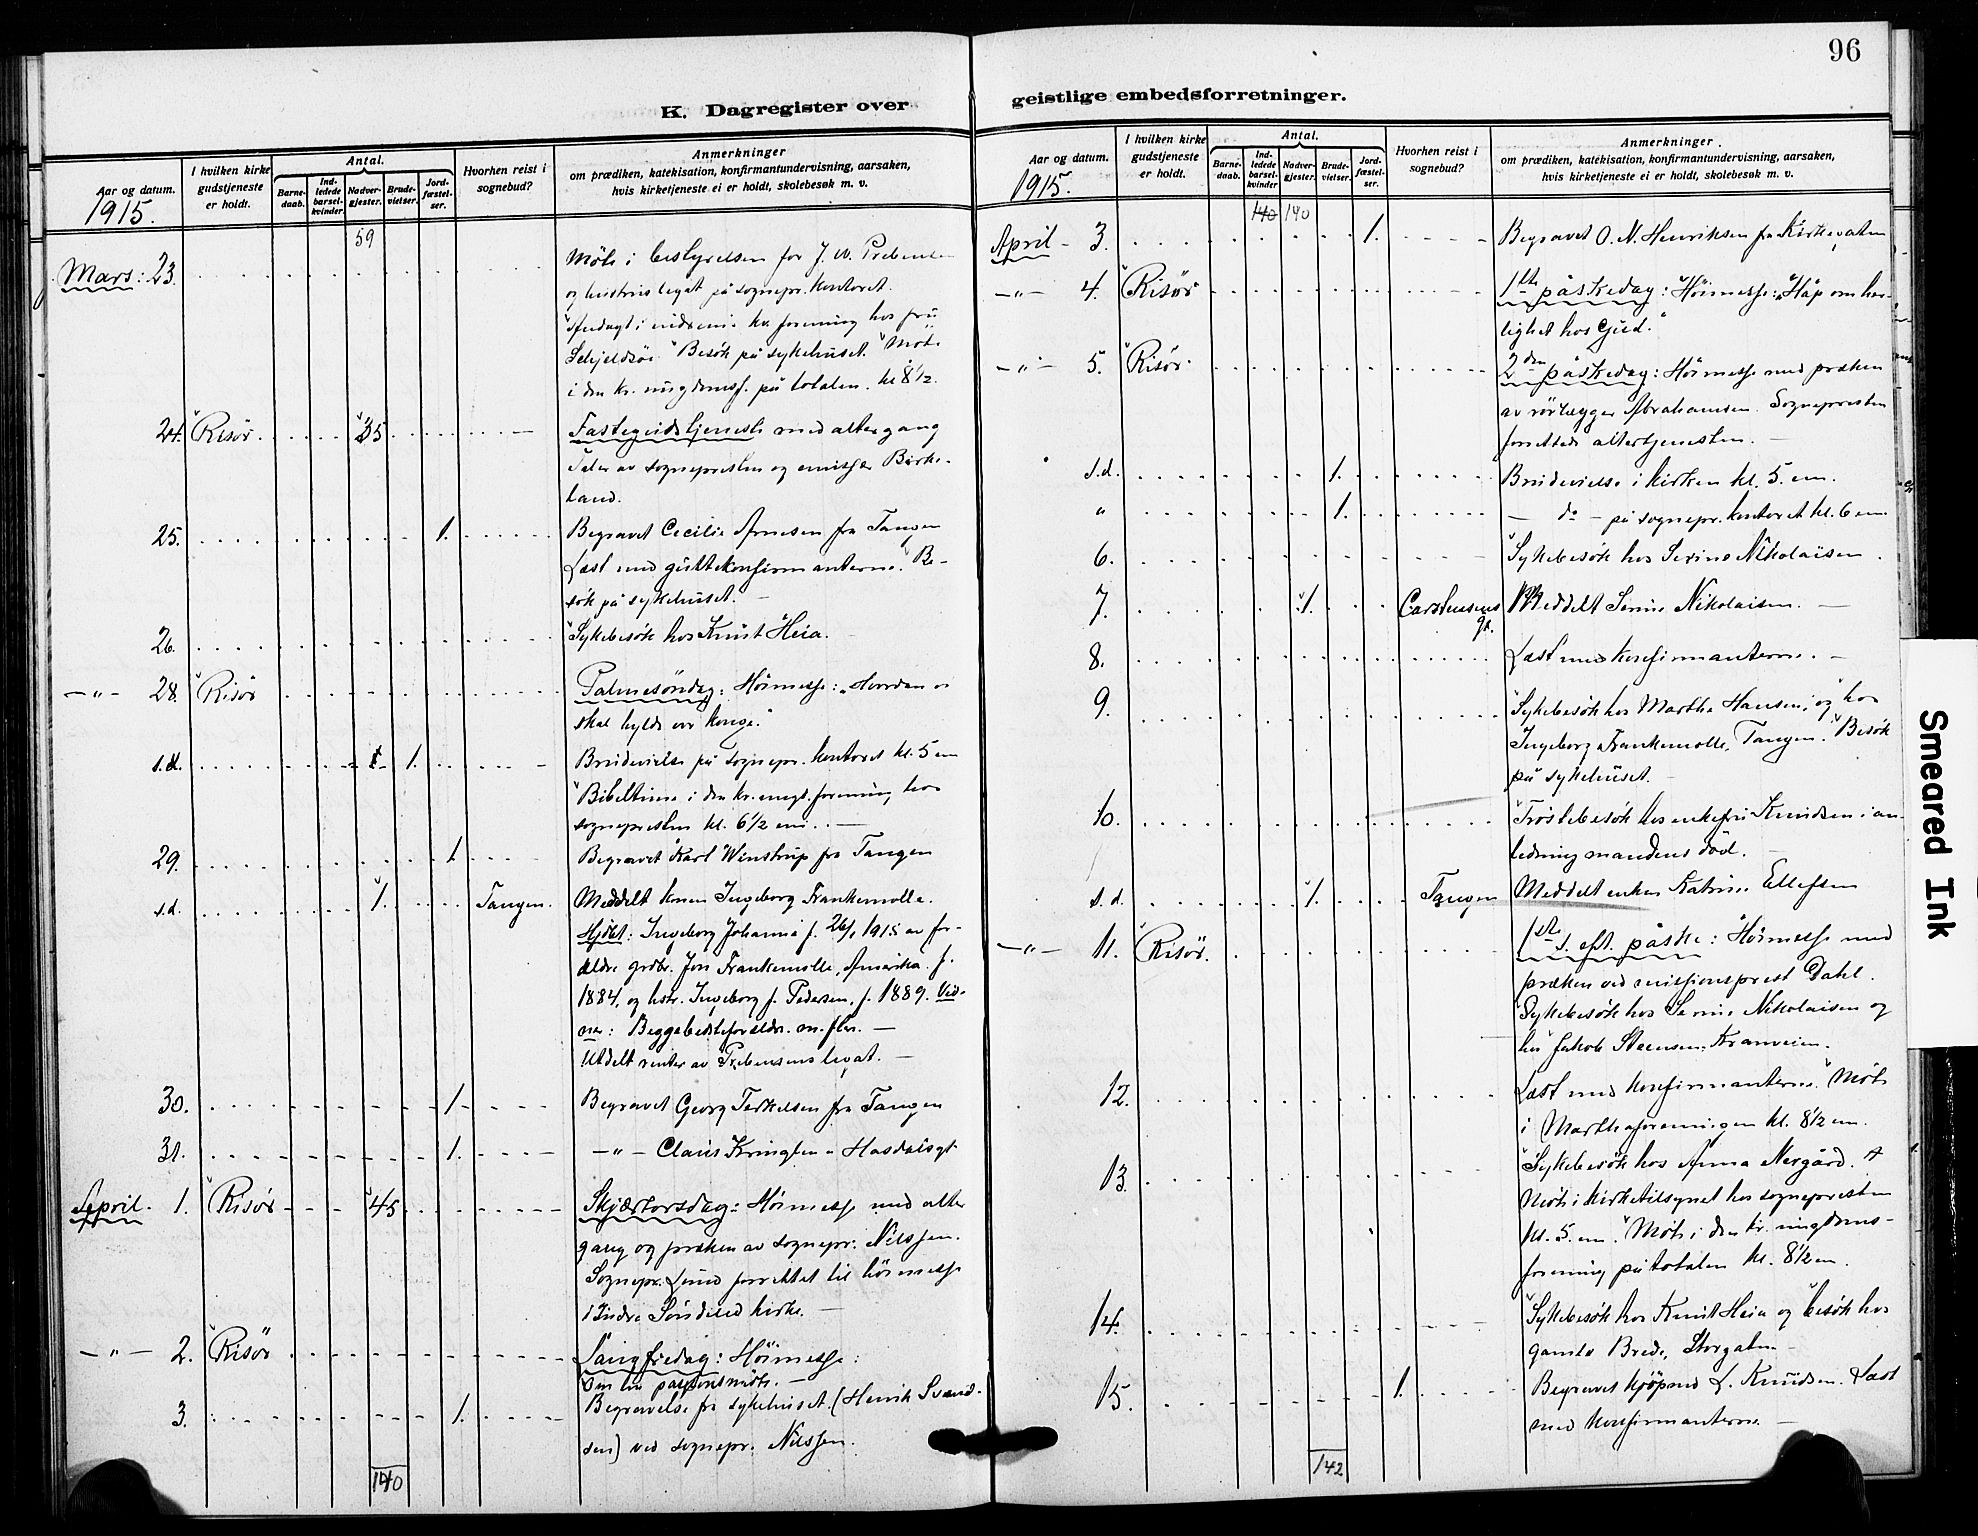 96
K. Dagregister over
Aar og datum.
1915.
I hvilken kirke gudstjeneste er holdt.
Antal.
Barnedaab.
Indledede barselkvinder
Nadvergjester.
Brudevielser.
Jordfæstelser.
Hvorhen reist i sognebud?
Anmerkninger
om prædiken, katekisation, konfirmantundervisning, aarsaken,
hvis kirketjeneste ei er holdt, skolebesøk m. v.
59
Mars: 23. Møte i bestyrelsen for J. W. Prebensen
og hustrus legat på sognepr. kontoret.
kv. forening hos fru
Besök på sykehuset. Møte
i den kr. på totalen. kl 8 1/2.
24. Risør. 35 Fastegudstjeneste med altergang
Taler av sognepresten og Birke-
land.
25. 1. Begravet Cecilie Arnesen fra Tangen
Læst med guttekonfirmanterne. Be-
sök på sykehuset. —
26. Sykebesök hos Knut Heia.
— " — 28. Risör Palmesöndag: Höimesse: "Hvordan vi
skal hylde vor konge."
s.d. 1. Brudevielse på sognepr. kontoret kl. 5 em
Bibeltime i den kr. ungd. forening hos
sognepresten kl. 6 1/2 em. —
29. 1 Begravet Karl Winstrup fra Tangen
s.d. 1. Tangen. Meddelt konen Ingeborg Frankemolle.
Hjdbt: Ingeborg Johanna f. 26/1 1915 av for-
ældre grdbr. Jon Frankemolle, Amerika f.
1884, og hstr. Ingeborg f. Pedersen, f. 1889. Vid-
ner: Begge bedsteforældr. m. fler. —
Utdelt renter av Prebensens legat. —
30. 1 Begravet Georg Terkelsen fra Tangen
31. 1. — " — Claus Kringlen " Hasdalsgt
April. 1. Risör 45 Skjærtorsdag: Höimesse med alter
gang og præken av sognepr. Nilssen.
Sognepr. Lund forrettet til höimesse
i Indre Söndeled kirke. —
— " — 2. Risör Langfredag: Höimesse:
Om —
3. 1. Begravelse fra sykehuset. (Henrik Svend-
sen) ved sognepr. Nilssen.
140
geistlige embedsforretninger.
Aar og datum.
1915.
I hvilken kirke gudstjeneste er holdt.
Antal.
Barnedaab.
Indledede barselkvinder
Nadvergjester.
Brudevielser.
Jordfæstelser.
Hvorhen reist i sognebud?
Anmerkninger.
om prædiken, katekisation, konfirmantundervisning, aarsaken,
hvis kirketjeneste ei er holdt, skolebesøk m. v.
140 140
April — 3. 1. Begravet O. N. Henriksen fra Kirkegaten
— " — 4. Risör 1ste påskedag: Höimesse: "Håp om her-
lighet hos Gud."
— " — 5. Risör 2den påskedag: Höimesse med præken
av rörlægger Abrahamsen. Sognepresten
forrettede altertjenesten. —
s.d. 1. Brudevielse i kirken kl. 5. em.
" 1. — do — på sognepr. kontoret kl. 6 em
6. Sykebesök hos Serine Nikolaisen.
7. 1. Carstensens gt. Meddelt Serine Nikolaisen. —
8. Læst med konfirmanterne. —
9. Sykebesök hos Martha Hansen, og hos
Ingeborg Frankemolle, Tangen. Besök
på sykehuset. —
10. Tröstebesök hos enkefru Knudsen i an-
ledning mandens död. —
s. d. 1. Tangen Meddelt enken Katrine Ellefsen
— " — 11. Risör. 1ste s. eft. påske: Höimesse med
præken ved missionsprest Dahl.
Sykebesök hos Serine Nikolaisen og
hos Jakob Steensen, Kranveien.
12. Læst med konfirmanterne. Møte
i Marthaforeningen kl. 8 1/2 em.
13. Sykebesök hos Anna Nergård.
Møte i kirketilsynet hos sognepresten
kl. 5. em. Møte i den kr. ungdoms-
forening på totalen kl. 8 1/2 em.
14. Sykebesök hos Knut Heia og besök hos
gamle Brede, Storgaten —
15. 1. Begravet kjøpmd L. Knudsen. Læst
med konfirmanterne. —
142
Smeared Ink